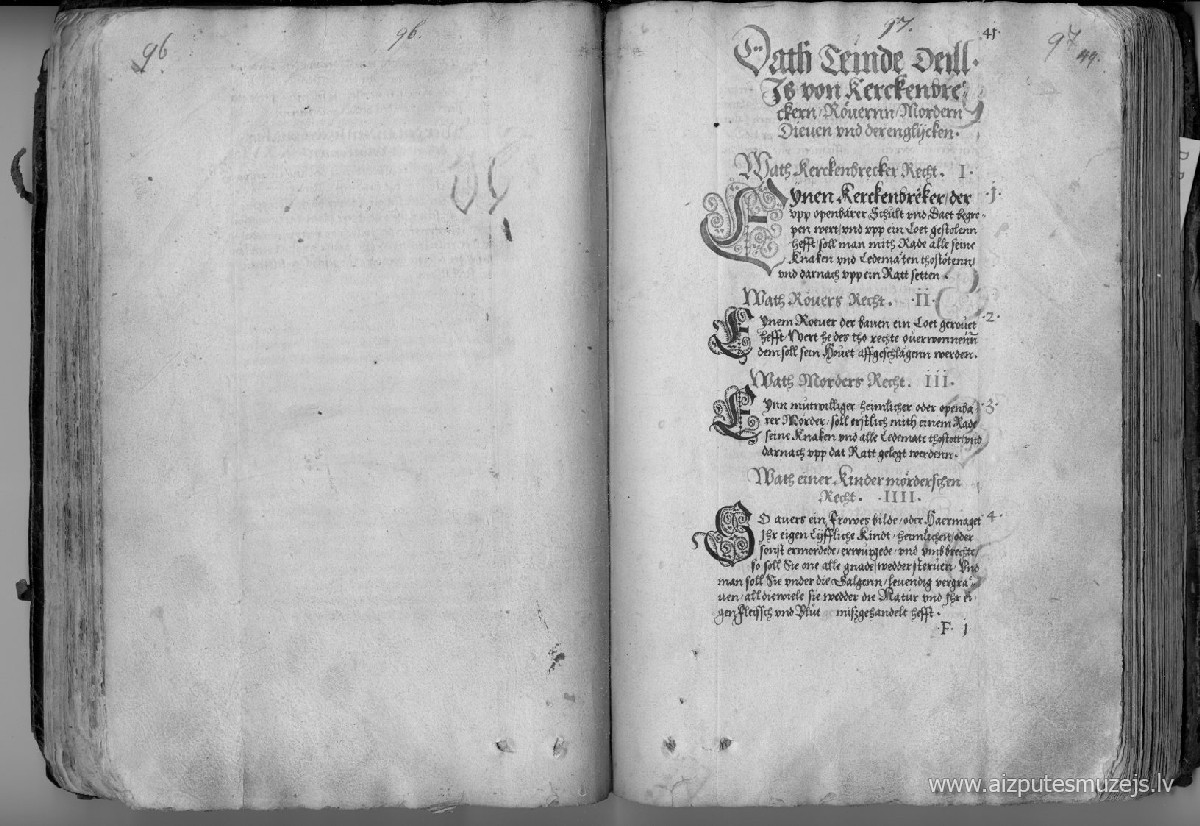 96
96.
97.
41
97
44.
Dath Teinde Deill.
Js von Kerckenbre
ckern/Röuernn/Mordern
Dieuen vnd derenglijcken.
Wath Kerckenbrecker Recht. I.
Eynen Kerckenbreker/der .j.
vpp openbarer Schult vnd Daet begre-
pen wert/vnd vpp ein Loet gestolenn
hefft/soll man mith Rade alle seine
Knaken vnd Ledematen thostötenn/
vnd darnach vpp ein Ratt setten.
Wath Röuers Recht. .II.
Eynem Rouer der bauen ein Loet gerouet .2.
hefft/Wert he des tho rechte ouerwonnenn
dem soll sein Houet affgeschlagenn werden.
Wath Morders Recht. III.
Eynn mutwilliger heimlicher oder openba .3.
rer Mörder/soll erstlich mith einem Rade
seine Knaken vnd alle Ledematt thostott/vnd
darnach vpp dat Ratt gelegt werdenn.
Wath einer Kinder mörderschen
Recht. .IIII.
SO auers ein Frowes bilde/oder Haermaget 4.
Jhr eigen Lyffliche Kindt/heimlichen/oder
sonst ermordede/erwurgede/vnd vmbbrechte/
so soll Sie one alle gnade/wedder steruen Vnd
man soll Sie vnder die Galgenn/leuendig vergra
uen/all diewiele sie wedder die Natur vnd Jhr ei
gen Fleisch vnd Blut mißgehandelt hefft.
.F. j
www.aizputesmuzejs.lv